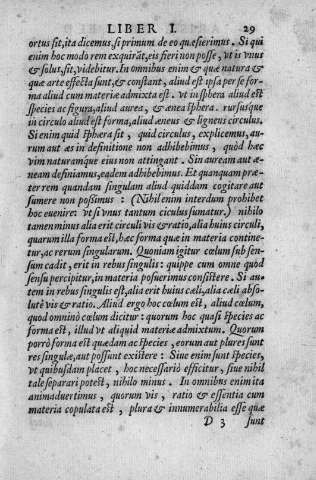 LIBER I. 29
ortus sit, ita dicemus, si primum de eo quæsierimus. Si qui
enim hoc modo rem exquirãt, eis fieri non posse, vt is vnus
& solus sit, videbitur. In omnibus enim & quæ natura &
quæ arte effecta sunt, & constant, aliud est ipsa per se for
ma aliud cum materiæ admixta est. vt in sphera aliud est
species ac figura, aliud aurea, & ænea sphera. rursusque
in circulo aliud est forma, aliud æneus & ligneus circulus.
Si enim quid sphæra sit, quid circulus, explicemus, au-
rum aut æs in definitione non adhibebimus, quòd hæc
vim naturamque eius non attingant. Sin auream aut æ-
neam definiamus, eadem adhibebimus. Et quanquam præ-
ter rem quandam singulam aliud quiddam cogitare aut
sumere non possimus: (Nihil enim interdum prohibet
hoc euenire: vt si vnus tantum ciculus sumatur.) nihilo
tamen minus alia erit circuli vis & ratio, alia huius circuli,
quarum illa forma est, hæc forma quæ in materia contine-
tur, ac rerum singularum. Quoniam igitur cœlum sub sen-
sum cadit, erit in rebus singulis: quippe cum omne quod
sensu percipitur, in materia posuerimus consistere. Si au-
tem in rebus singulis est, alia erit huius cæli, alia cæli abso-
lutè vis & ratio. Aliud ergo hoc cœlum est, aliud cœlum,
quod omninò cœlum dicitur: quorum hoc quasi species ac
forma est, illud vt aliquid materiæ admixtum. Quorum
porrò forma est quædam ac species, eorum aut plures sunt
res singulæ, aut possunt existere: Siue enim sunt species,
vt quibusdam placet, hoc necessariò efficitur, siue nihil
tale separari potest, nihilo minus. In omnibus enim ita
animaduertimus, quorum vis, ratio & essentia cum
materia copulata est, plura & innumerabilia esse quæ
D 3 sunt